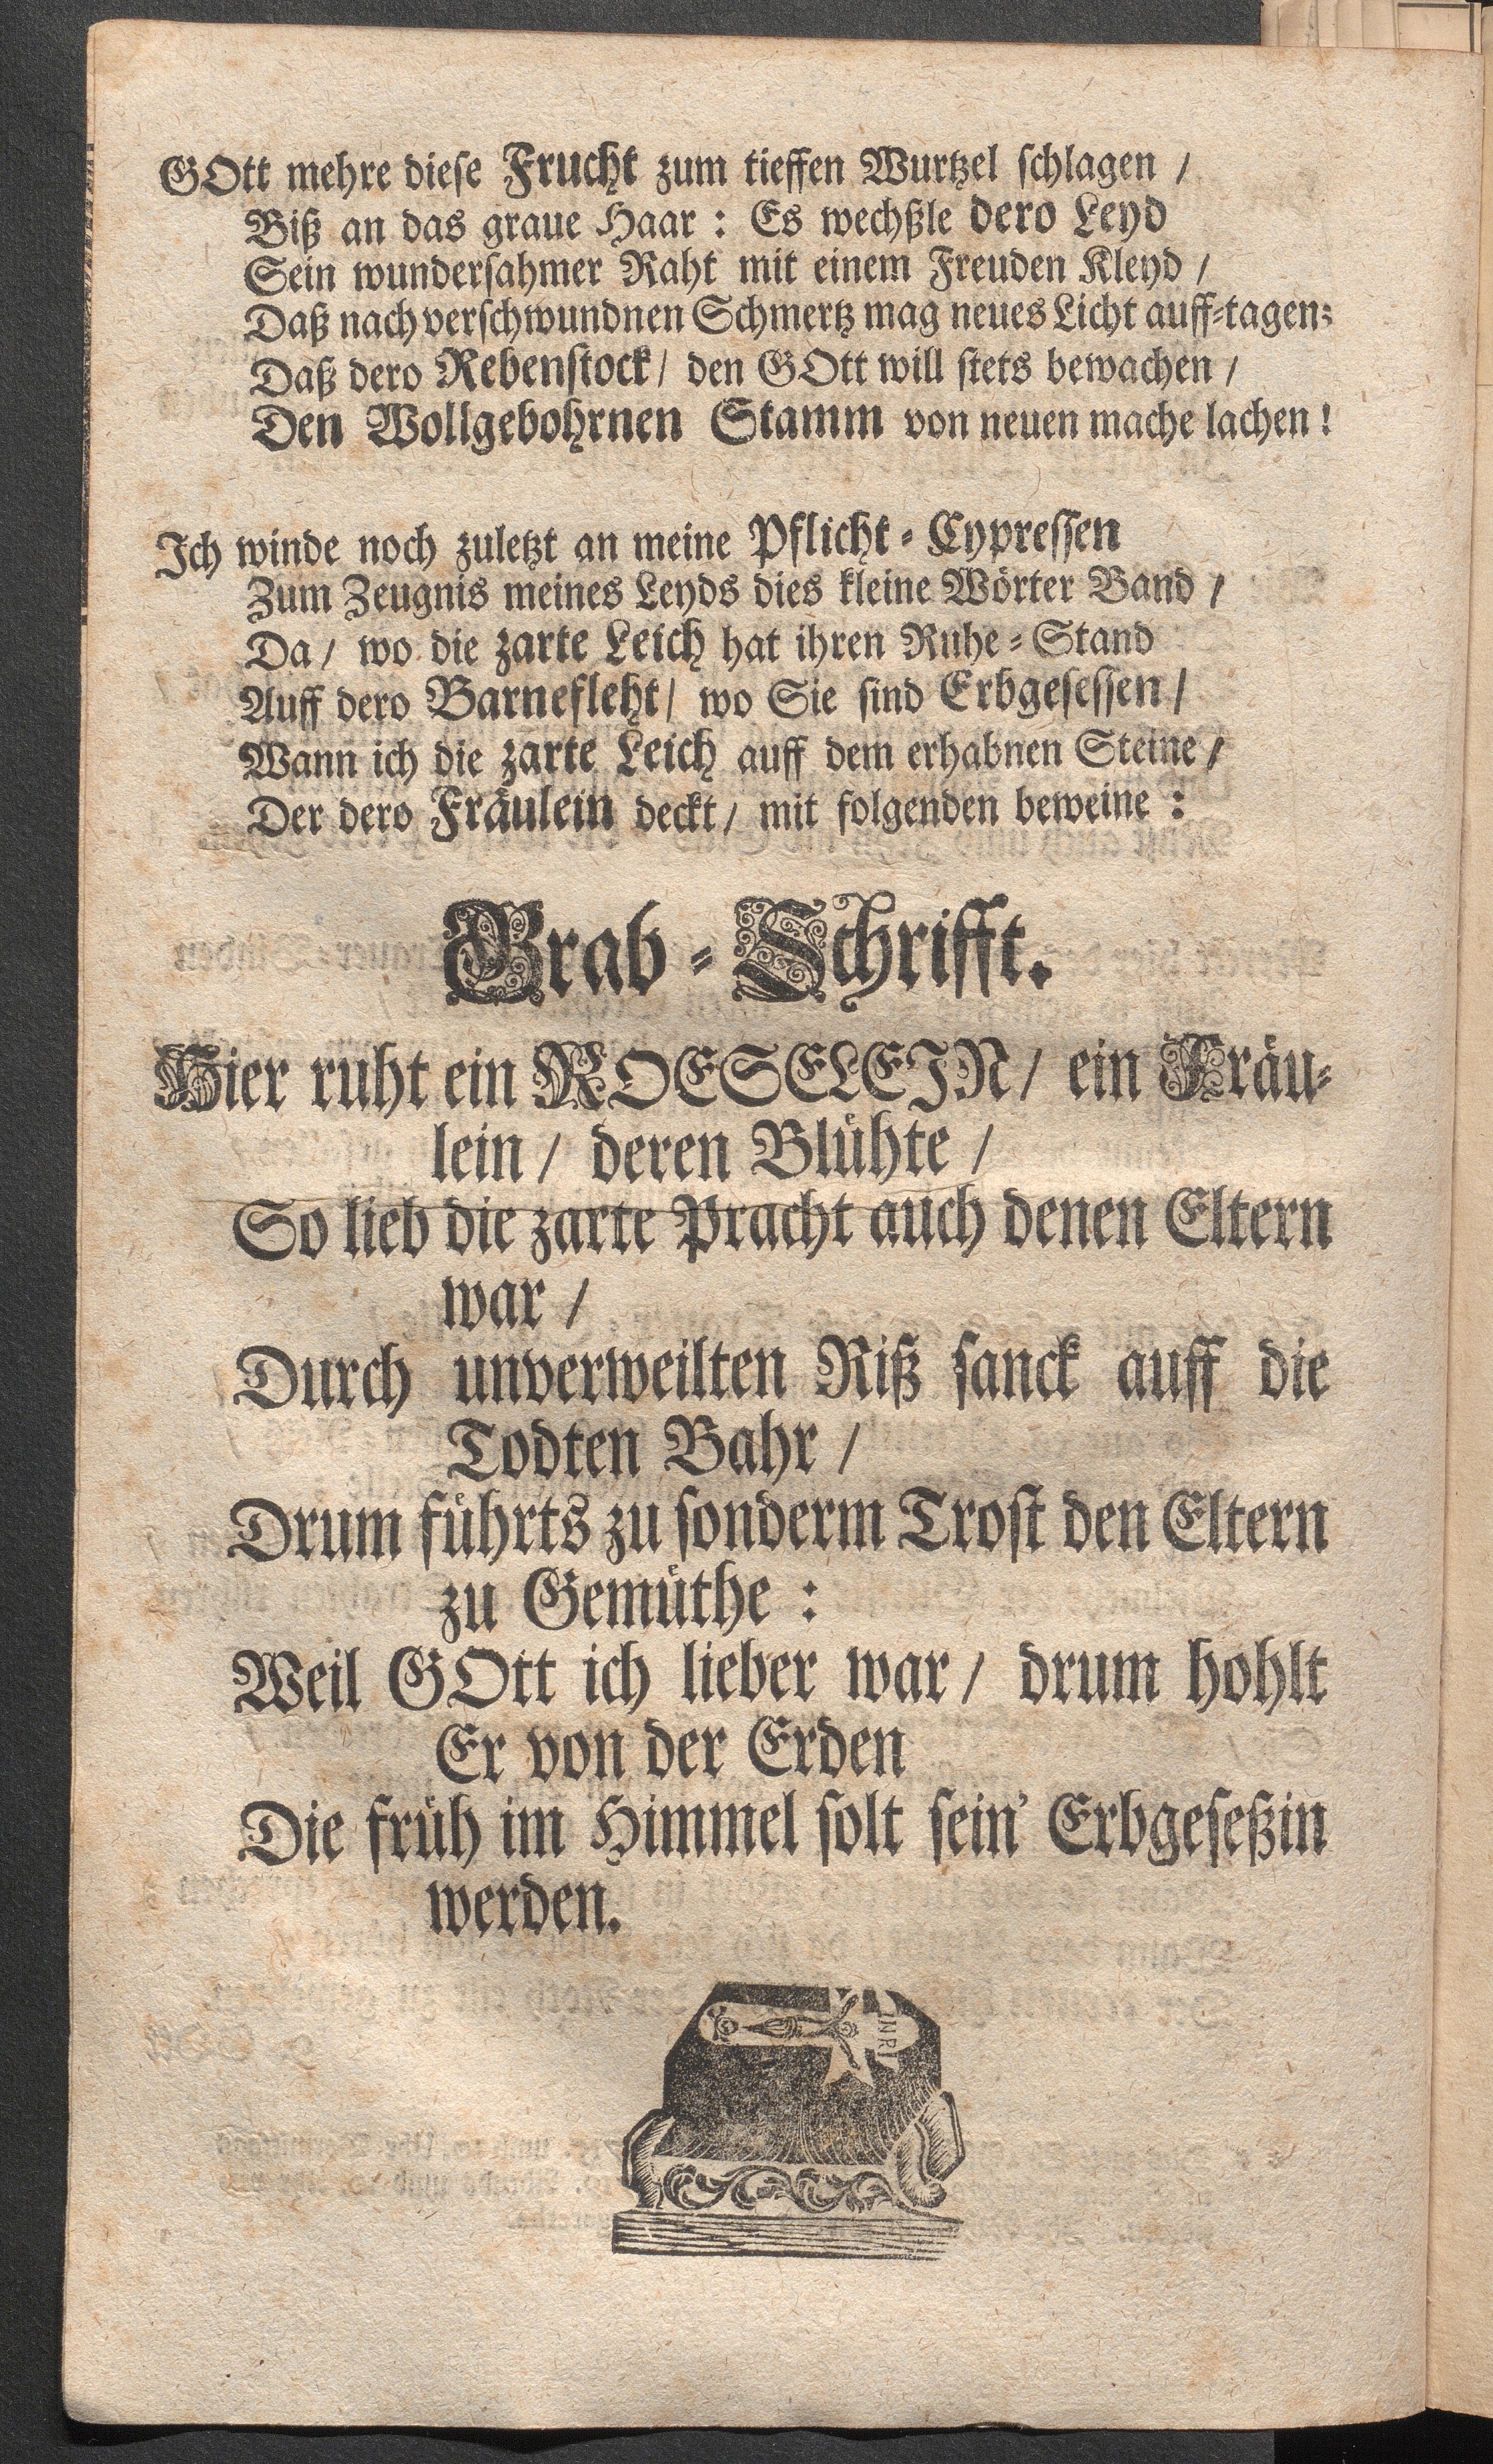 GOtt mehre diese Frucht zum tieffen Wurtzel schlagen /
Biß an das graue Haar : Es wechßle dero Leyd
Sein wundersahmer Raht mit einem Freuden Kleyd /
Daß nach verschwundnen Schmertz mag neues Licht auff-tagen;
Daß dero Rebenstock / den GOtt will stets bewachen /
Den Wollgebohrnen Stamm von neuen mache lachen !
Ich winde noch zuletzt an meine Pflicht-Cypressen
Zum Zeugnis meines Leyds dies kleine Wörter Band /
Da / wo die zarte Leich hat ihren Ruhe-Stand
Auff dero Barnefleht / wo Sie sind Erbgesessen /
Wann ich die zarte Leich auff dem erhabnen Steine /
Der dero Fräulein deckt / mit folgenden beweine :
Grab-Schrifft.
Hier ruht ein ROESELEIN / ein Fräu-
lein / deren Blühte /
So lieb die zarte Pracht auch denen Eltern
war /
Durch unverweilten Riß sanck auff die
Todten Bahr /
Drum führts zu sonderm Trost den Eltern
zu Gemüthe :
Weil GOtt ich lieber war / drum hohlt
Er von der Erden
Die früh im Himmel solt sein' Erbgeseßin
werden.
INRI